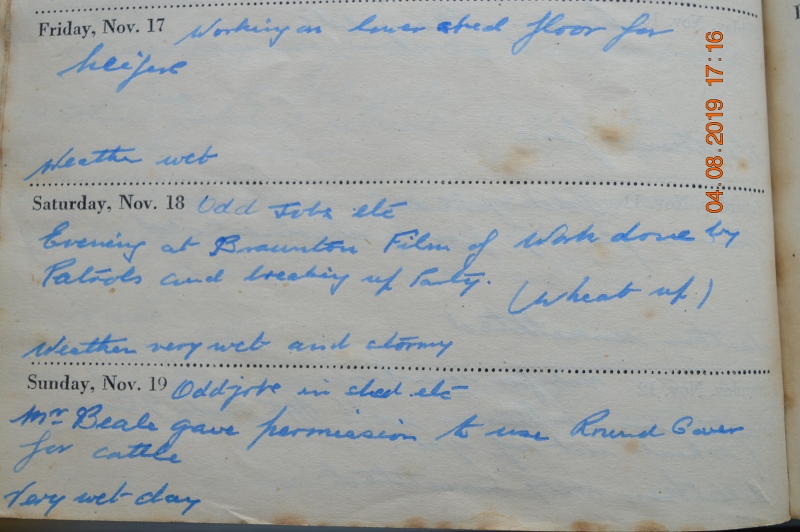 Friday, Nov. 17 Working on lower shed floor for
heifers
Weather wet
Saturday, Nov. 18 Odd Jobs etc
Evening at Braunton Film of Work done by
Patrols and breaking up Party.
(Wheat up)
Weather very wet and stormy
Sunday, Nov. 19 Odd jobs in shed etc
Mr Beale gave permission to use Round Cover
for cattle
Very wet day
04.08.2019 17:16